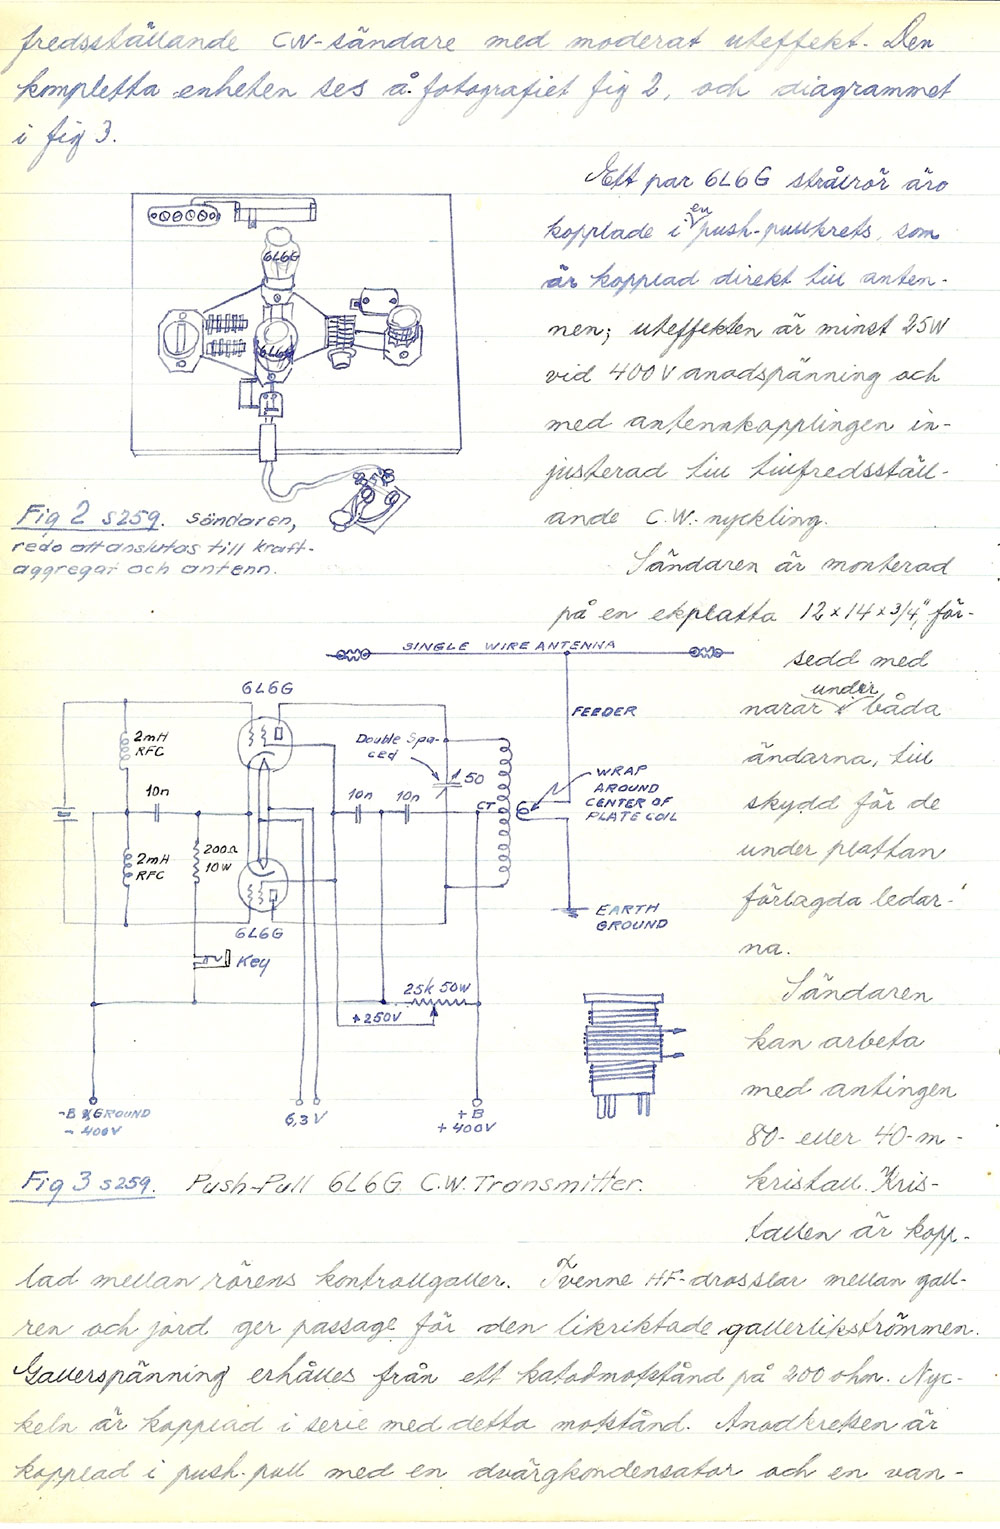 fredsställande CW-sändare med moderat uteffekt. Den
kompletta enheten ses å fotografiet fig 2, och diagrammet
i fig 3.
6L6G
6L6G
Fig 2 s259. Sändaren,
redo att anslutas till kraft-
aggregat och antenn.
Ett par 6L6G strålrör äro
kopplade i en push-pullkrets, som
är kopplad direkt till anten-
nen; uteffekten är minst 25W
vid 400V anodspänning och
med antennkopplingen in-
justerad till tillfredsställ-
ande C.W. nyckling.
Sändaren är monterad
på en ekplatta 12x14x3/4", för-
sedd med
narar under båda
ändarna, till
skydd för de
under plattan
förlagda ledar-
na.
Sändaren
kan arbeta
med antingen
80- eller 40-m-
kristall. Kris-
tallen är kopp-
SINGLE WIRE ANTENNA
6L6G
FEEDER
2mH
RFC
Double Spa-
ced
50
WRAP
AROUND
CENTER OF
PLATE COIL
10n
10n
10n
CT
2mH
RFC
200Ω
10W
6L6G
EARTH
GROUND
Key
25k 50W
+250V
-B & GROUND
- 400V
6,3V
+B
+400V
Fig 3 s259. Push-Pull 6L6G C.W. Transmitter.
lad mellan rörens kontrollgaller. Tvenne HF-drosslar mellan gall-
ren och jord ger passage för den likriktade gallerlikströmmen.
Gallerspänning erhålles från ett katodmotstånd på 200 ohm. Nyc-
keln är kopplad i serie med detta motstånd. Anodkretsen är
kopplad i push-pull med en dvärgkondensator och en van-